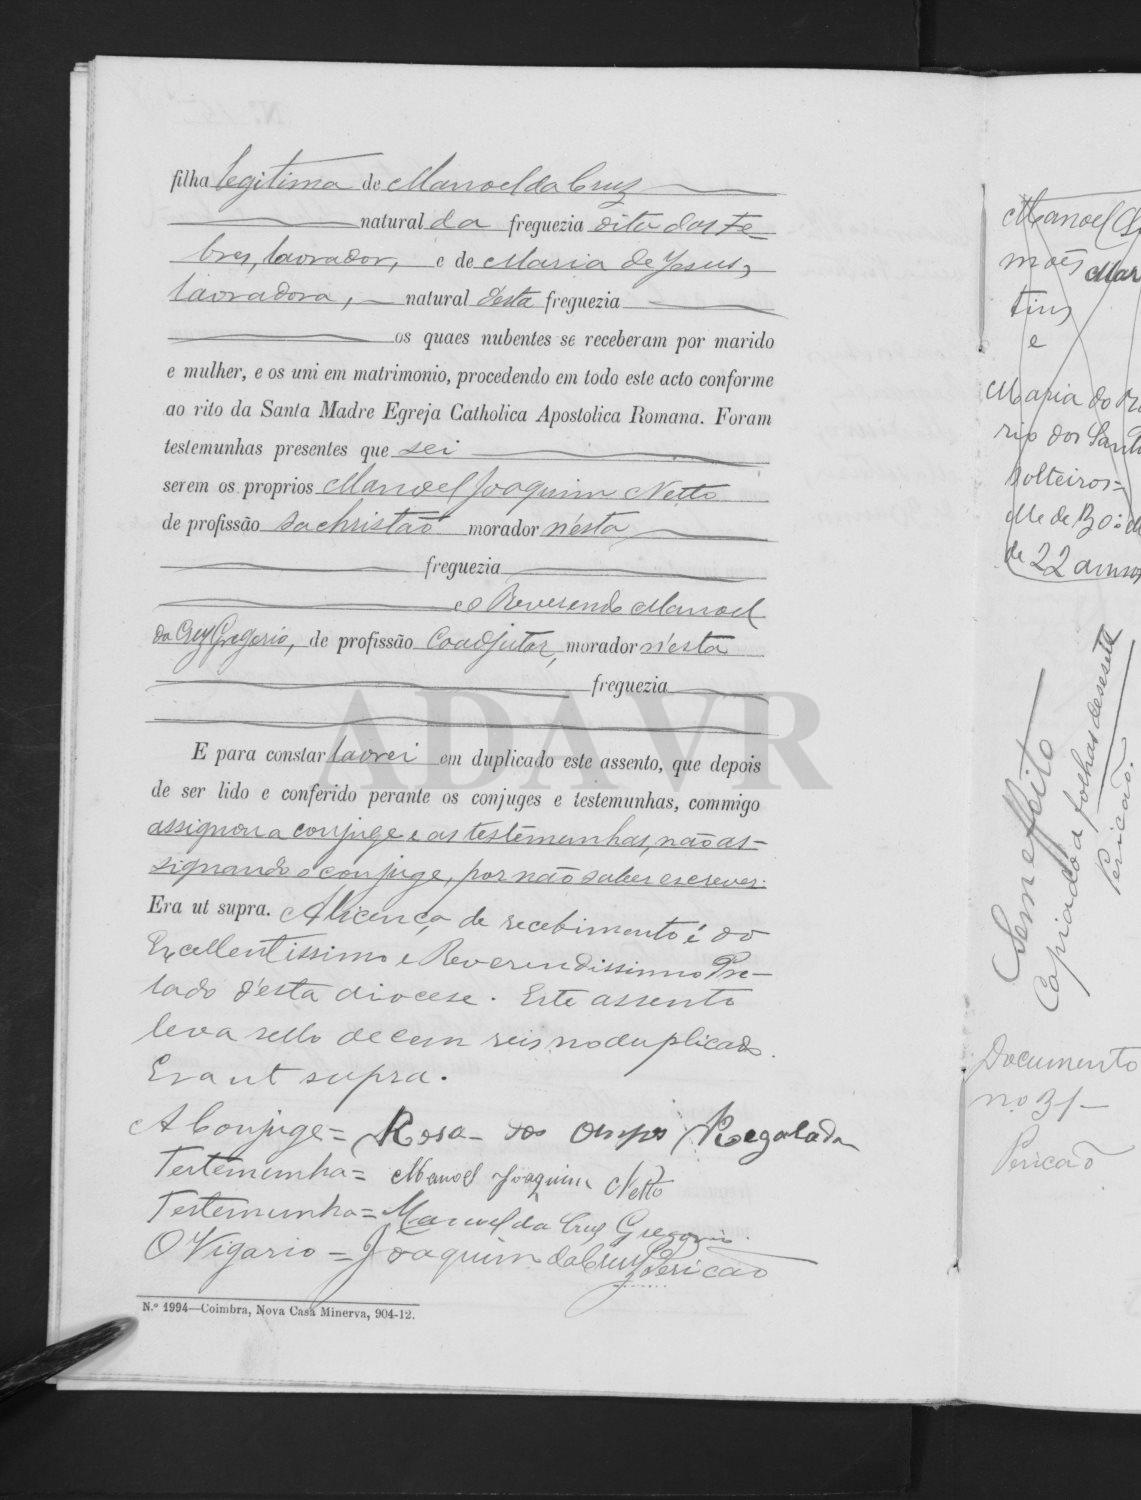 filha legitima de Manoel da Cruz
natural da freguezia dita das Fe-
bres, lavrador, e de Maria de Jesus,
lavradora, natural d'esta freguezia
os quaes nubentes se receberam por marido
e mulher, e os uni em matrimonio, procedendo em todo este acto conforme
ao rito da Santa Madre Egreja Catholica Apostolica Romana. Foram
testemunhas presentes que sei
serem os proprios Manoel Joaquim Netto
de profissão sachristão morador n'esta
freguezia
e o Reverendo Manoel
da Cruz Gregorio, de profissão Coadjutor, morador n'esta
freguezia
E para constar lavrei em duplicado este assento, que depois
de ser lido e conferido perante os conjuges e testemunhas, commigo
assignou a conjuge e as testemunhas, não as-
signando o conjuge, por não saber escrever.
Era ut supra. A licença de recebimento é do
Excellentissimo e Reverendissimo Pre-
lado d'esta diocese. Este assento
leva sello de cem reis no duplicado.
Era ut supra.
A Conjuge = Rosa dos Regalada
Testemunha = Manoel Joaquim Netto
Testemunha = Manuel da Cruz Gregorio.
O Vigario = Joaquim da Cruz Pericão
N.º 1994—Coimbra, Nova Casa Minerva, 904-12.
ADAVR
Manoel
mões Mar
tins
e
Maria do
rio dos Sant
solteiros =
de 22 annos
Sem effeito
Copiado a folhas desesete
Pericão.
Documento
n.º 31 —
Pericão